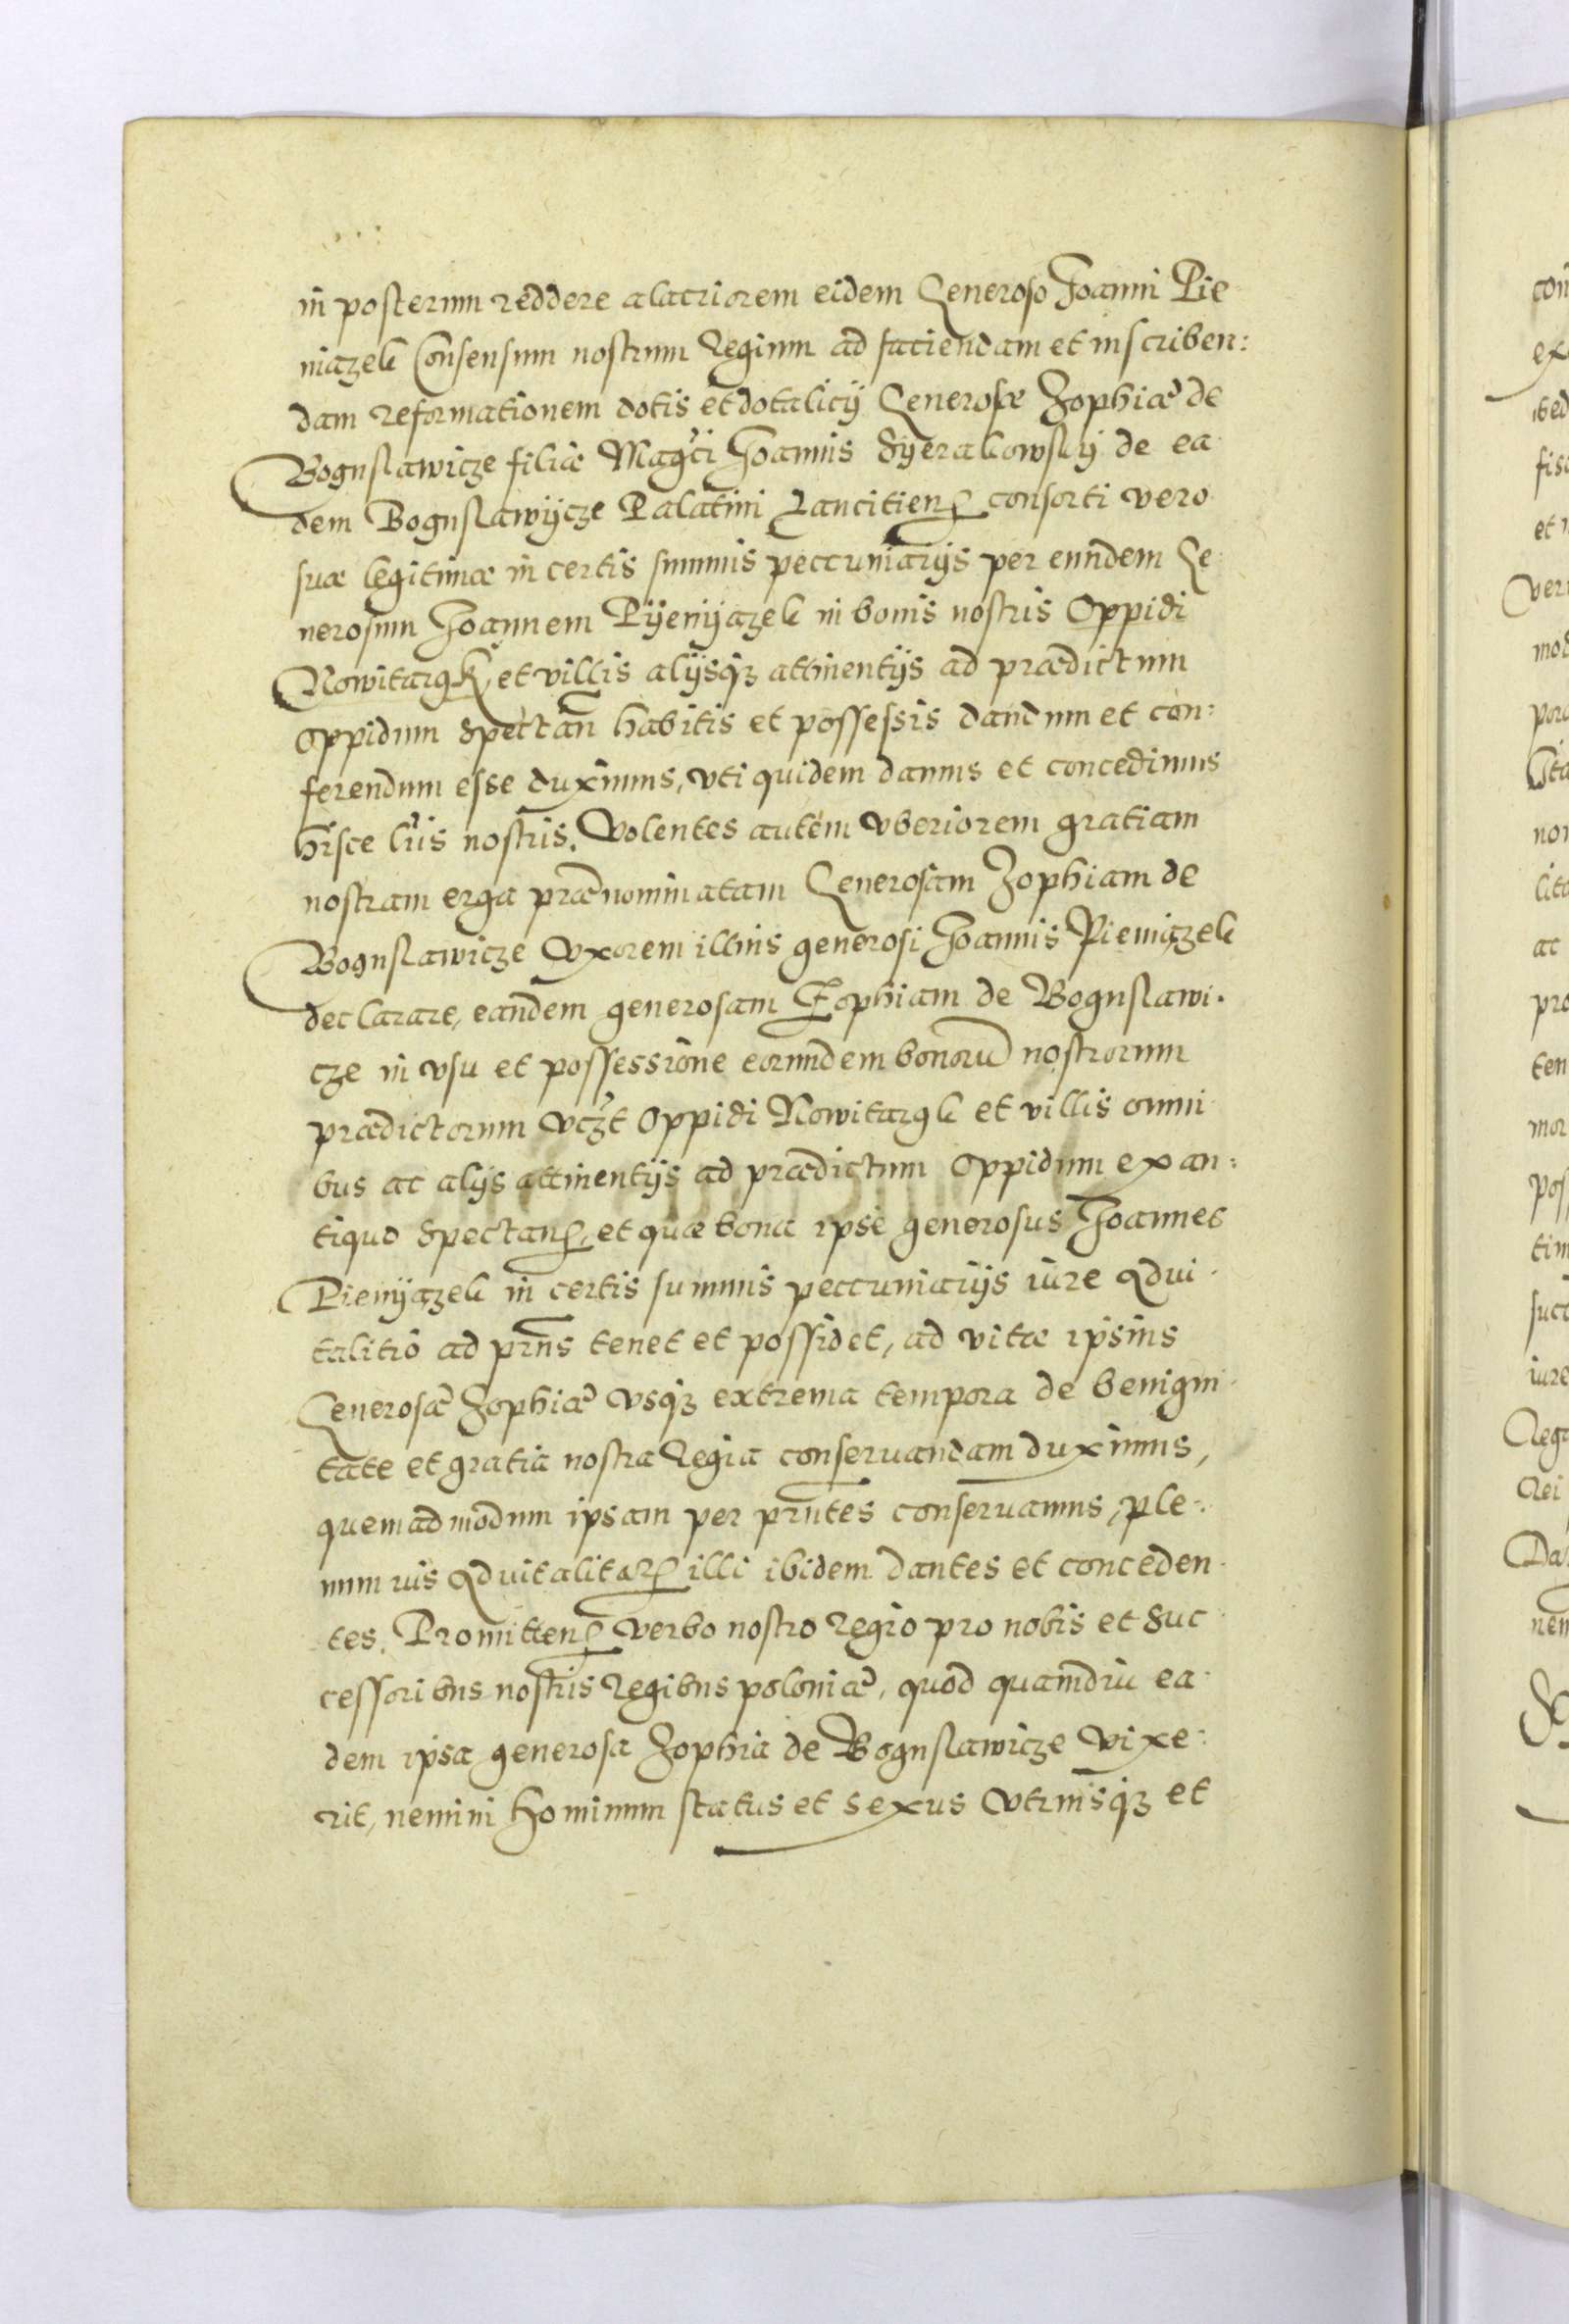 in posterum reddere alacriorem eidem Generoso Joanni Pie
niazek Consensum nostrum Regium ad faciendam et inscriben:
dam reformationem dotis et dotalicij Generosæ Zophiæ de
Boguslawicze filiæ Mag'ci Joannis Syerakowskij de ea
dem Boguslawijcze Palatini Lancitien̄ consorti vero
suæ legitimæ in certis summis peccuniarijs per eundem Ge
nerosum Joannem Pijenijazek in bonis nostris Oppidi
Nowitargk et villis alijsq₃ attinentijs ad prædictum
Oppidum spectan̄ habitis et possessis dandum et con:
ferendum esse duximus, uti quidem damus et concedimus
hisce lr̄is nostris. Volentes autem uberiorem gratiam
nostram erga prænominatam Generosam Zophiam de
Boguslawicze Uxorem illius generosi Joannis Pieniązek
declarare, eandem generosam Zophiam de Boguslawi.
cze in usu et possessione eorundem bonorū nostrorum
prædictorum vcz't Oppidi Nowitargk et villis omni
bus ac alijs attinentijs ad prædictum Oppidum ex an:
tiquo spectan̄, et quæ bona ipse generosus Joannes
Pienijązek in certis summis peccuniarijs iure advi
talitio ad prn̄s tenet et possidet, ad vitæ ipsius
Generosæ Zophiæ usq₃ extrema tempora de benigni
tate et gratia nostra Regia conservandam duximus,
quemadmodum ipsam per prn̄tes conservamus, ple:
num ius advitalitar̄ illi ibidem dantes et conceden
tes. Promitten̄ verbo nostro regio pro nobis et Suc
cessoribus nostris Regibus poloniæ, quod quamdiu ea
dem ipsa generosa Zophia de Boguslawicze vixe:
rit, nemini hominum status et sexus utriusq₃ et